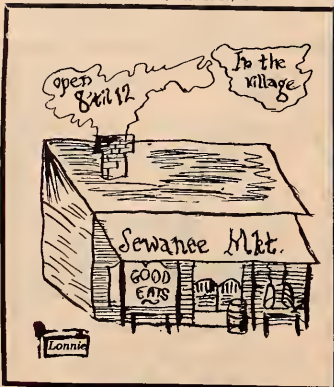 open
8 'til 12
In the
Village
Sewanee Mkt.
GOOD
EATS
Lonnie